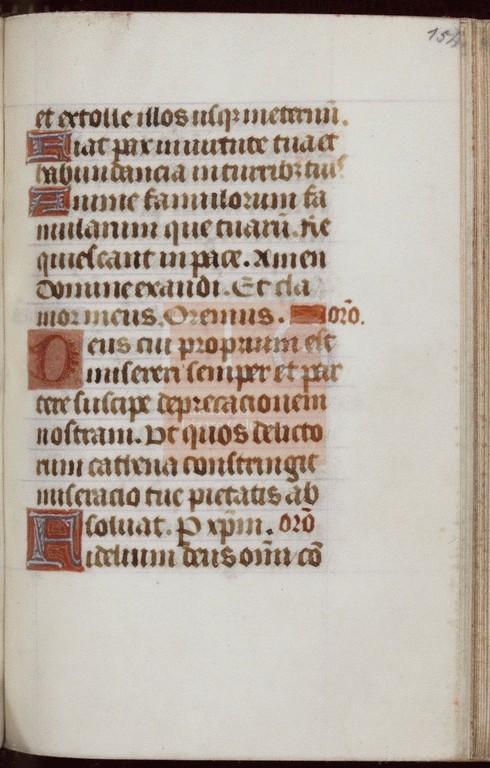 154
et extolle illos usq; in eternū.
Fiat pax in virtute tua et
habundancia in turribꝫ tuis
Anime famulorum fa
mularum que tuarū. Re
quiescant in pace. Amen
Domine exaudi. Et cla
mor meus. Oremus. orō.
Deus cui proprium est
misereri semper et par
cere suscipe deprecacionem
nostram. Vt quos delicto
rum cathena constringit
miseracio tue pietatis ab
soluat. P xp̄m. orō
Fidelium deus om̄i cō